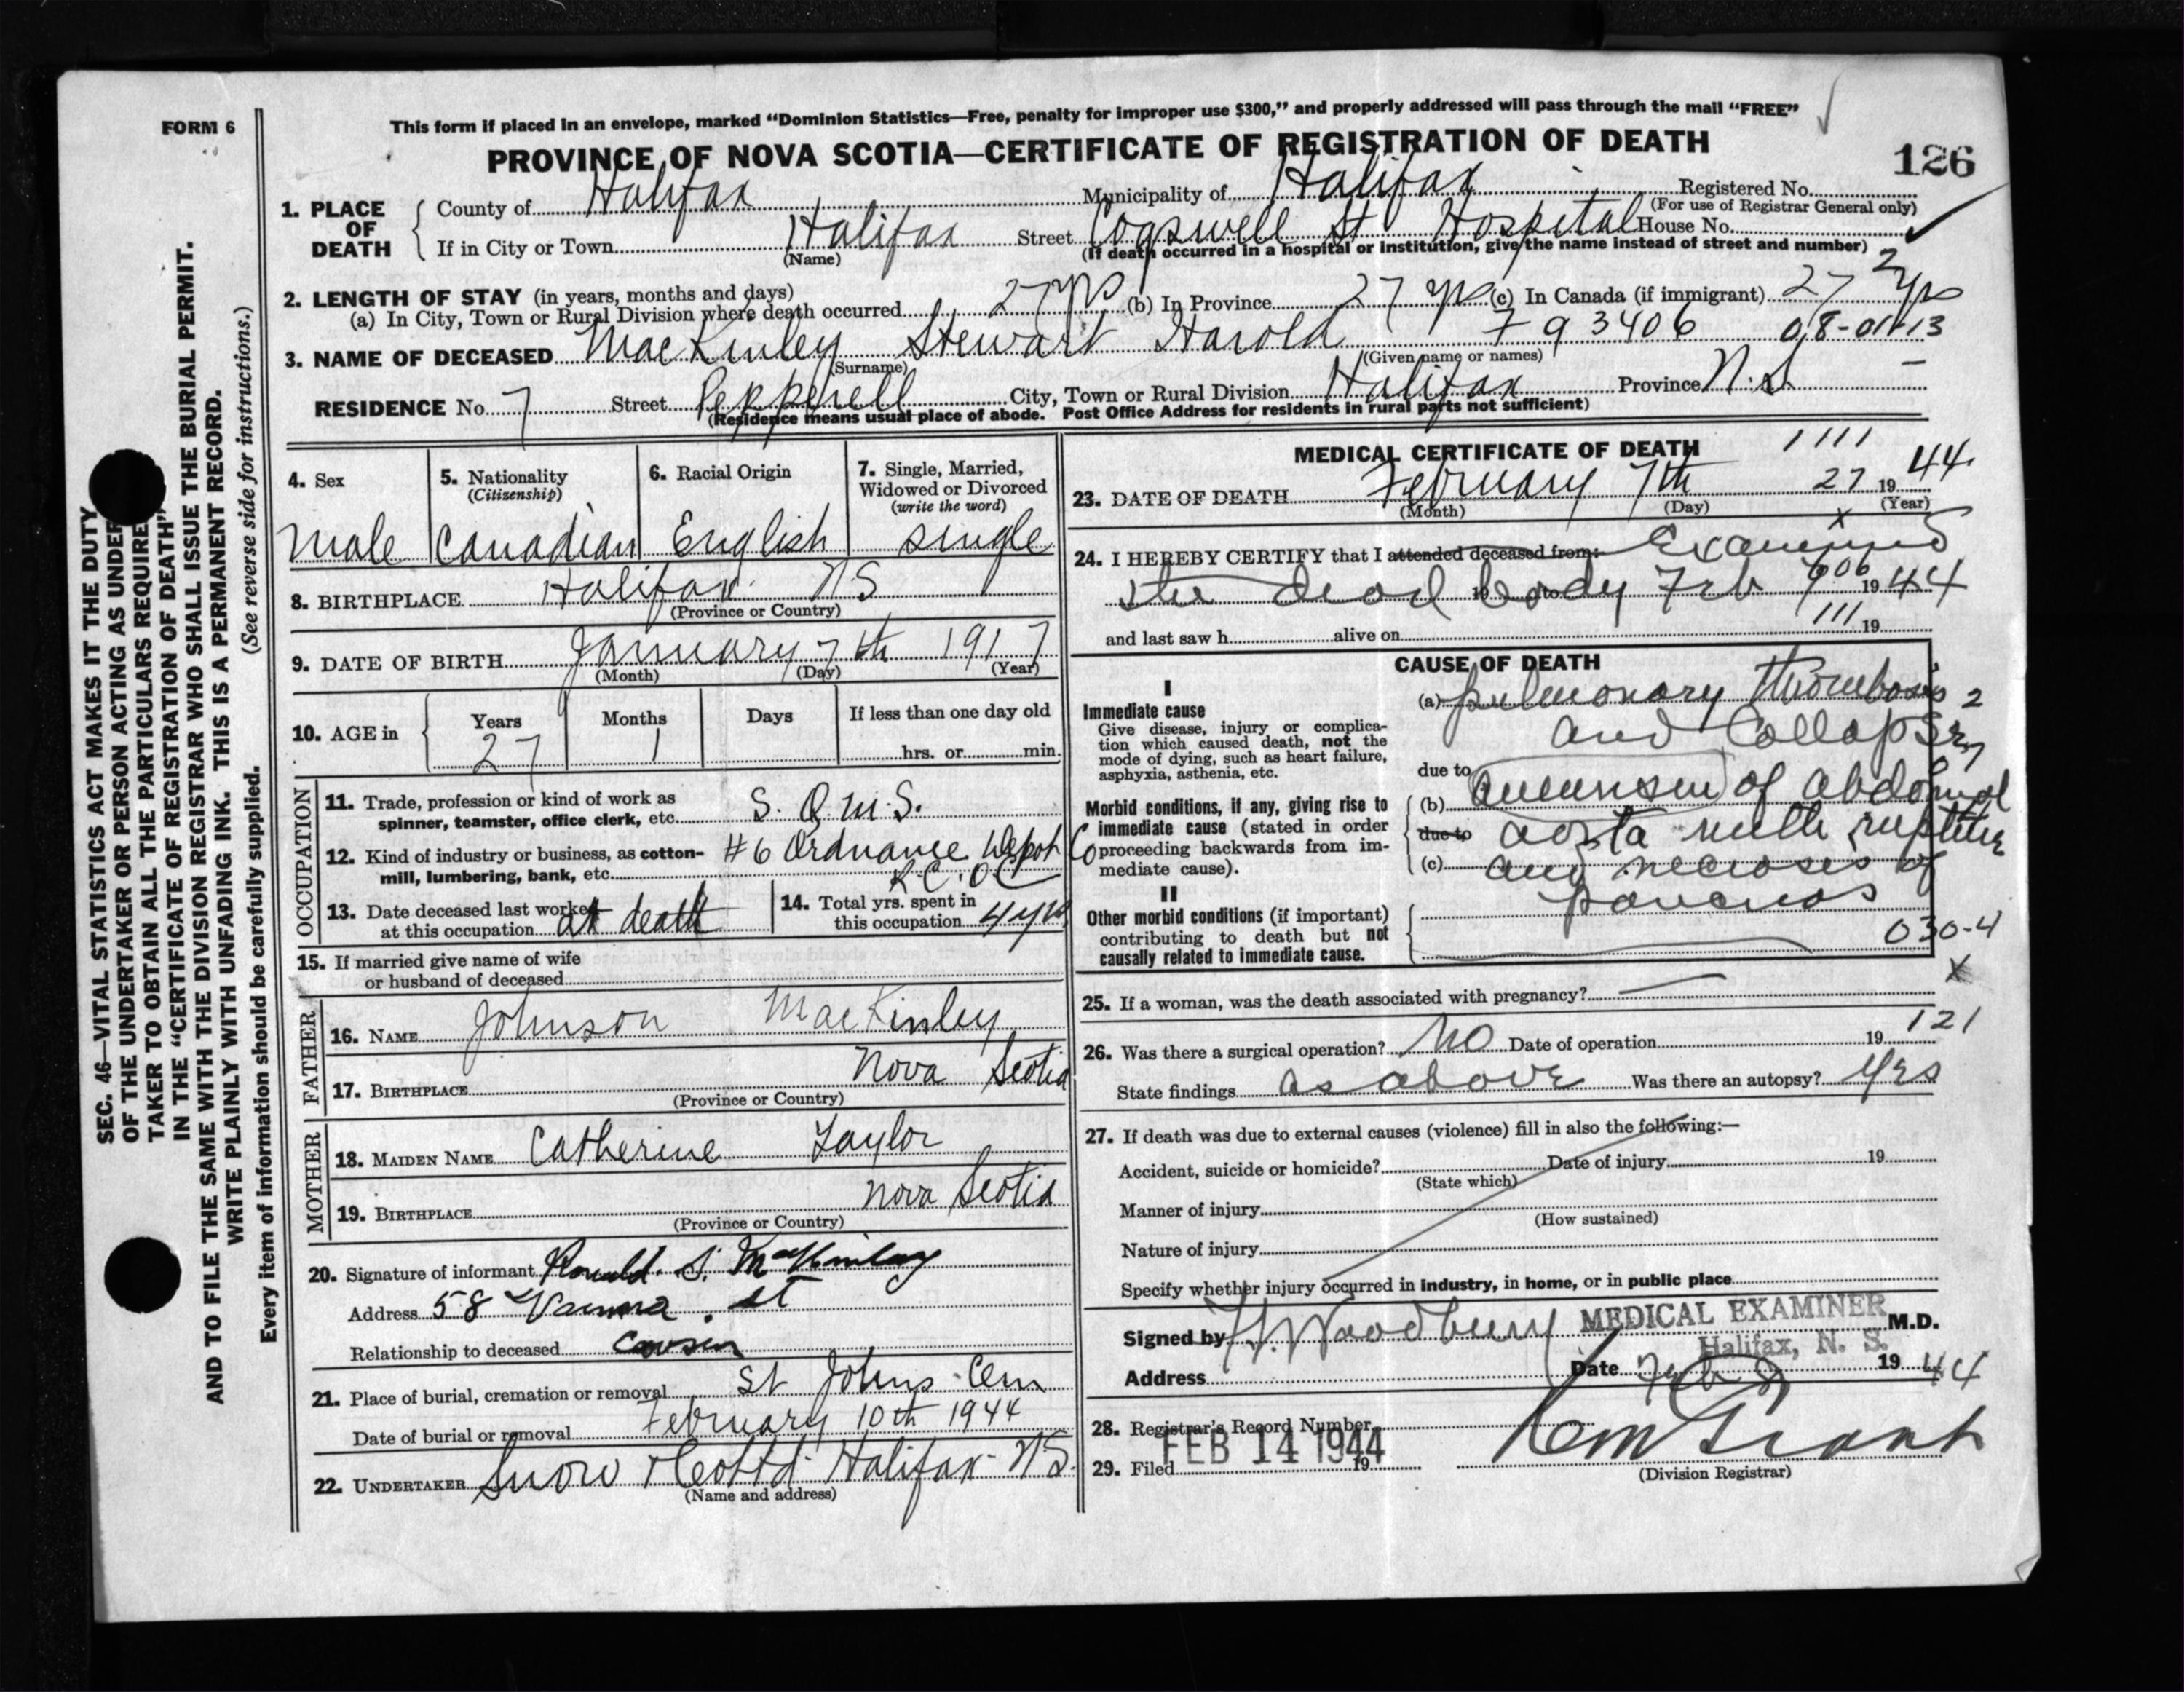 FORM 6
This form if placed in an envelope, marked “Dominion Statistics—Free, penalty for improper use $300,” and properly addressed will pass through the mail “FREE”
PROVINCE OF NOVA SCOTIA—CERTIFICATE OF REGISTRATION OF DEATH
126
1. PLACE OF DEATH
County of Halifax Municipality of Halifax Registered No.
(For use of Registrar General only)
If in City or Town Halifax Street Cogswell St Hospital House No.
(Name) (If death occurred in a hospital or institution, give the name instead of street and number)
2. LENGTH OF STAY (in years, months and days)
(a) In City, Town or Rural Division where death occurred 27 yrs (b) In Province 27 yrs (c) In Canada (if immigrant) 27 yrs
2
3. NAME OF DECEASED MacKinley Stewart Harold F 93406 08-01-13
(Surname) (Given name or names)
RESIDENCE No. 7 Street Pepperell City, Town or Rural Division Halifax Province N.S.
(Residence means usual place of abode. Post Office Address for residents in rural parts not sufficient)
4. Sex
male
5. Nationality
(Citizenship)
Canadian
6. Racial Origin
English
7. Single, Married,
Widowed or Divorced
(write the word)
single
8. BIRTHPLACE Halifax N S
(Province or Country)
9. DATE OF BIRTH January 7th 1917
(Month) (Day) (Year)
10. AGE in
Years Months Days If less than one day old
27 1 hrs. or min.
OCCUPATION
11. Trade, profession or kind of work as
spinner, teamster, office clerk, etc. S. Q. M. S.
12. Kind of industry or business, as cotton-
mill, lumbering, bank, etc. #6 Ordnance Depot
R.C.O.C
13. Date deceased last worked
at this occupation at death
14. Total yrs. spent in
this occupation 4 yrs
15. If married give name of wife
or husband of deceased
FATHER
16. NAME Johnson MacKinley
17. BIRTHPLACE Nova Scotia
(Province or Country)
MOTHER
18. MAIDEN NAME Catherine Taylor
19. BIRTHPLACE Nova Scotia
(Province or Country)
20. Signature of informant Ronald S. MacKinlay
Address 58 St
Relationship to deceased Cousin
21. Place of burial, cremation or removal St Johns Cem
Date of burial or removal February 10th 1944
22. UNDERTAKER Snow & Co Ltd Halifax N S.
(Name and address)
MEDICAL CERTIFICATE OF DEATH
1111
23. DATE OF DEATH February 7th 27 1944
(Month) (Day) (Year)
x
24. I HEREBY CERTIFY that I attended deceased from: Examined
the dead body Feb 7 1944
606
and last saw h alive on 19
111
CAUSE OF DEATH
I
Immediate cause
Give disease, injury or complica-
tion which caused death, not the
mode of dying, such as heart failure,
asphyxia, asthenia, etc.
(a) pulmonary thrombosis 2
and Collapse
due to
Morbid conditions, if any, giving rise to
immediate cause (stated in order
proceeding backwards from im-
mediate cause).
(b) aneurism of abdominal
due to aorta with rupture
(c) and necrosis of
pancreas
II
Other morbid conditions (if important)
contributing to death but not
causally related to immediate cause.
030-4
x
25. If a woman, was the death associated with pregnancy?
121
26. Was there a surgical operation? No Date of operation 19
State findings as above Was there an autopsy? Yes
27. If death was due to external causes (violence) fill in also the following:—
Accident, suicide or homicide? Date of injury 19
(State which)
Manner of injury
(How sustained)
Nature of injury
Specify whether injury occurred in industry, in home, or in public place
Signed by H. Woodbury MEDICAL EXAMINER M.D.
Halifax, N. S.
Address Date Feb 8 1944
28. Registrar's Record Number
FEB 14 1944
29. Filed 19
(Division Registrar)
SEC. 46—VITAL STATISTICS ACT MAKES IT THE DUTY
OF THE UNDERTAKER OR PERSON ACTING AS UNDER
TAKER TO OBTAIN ALL THE PARTICULARS REQUIRE
IN THE “CERTIFICATE OF REGISTRATION OF DEATH”
AND TO FILE THE SAME WITH THE DIVISION REGISTRAR WHO SHALL ISSUE THE BURIAL PERMIT.
WRITE PLAINLY WITH UNFADING INK. THIS IS A PERMANENT RECORD.
(See reverse side for instructions.)
Every item of information should be carefully supplied.